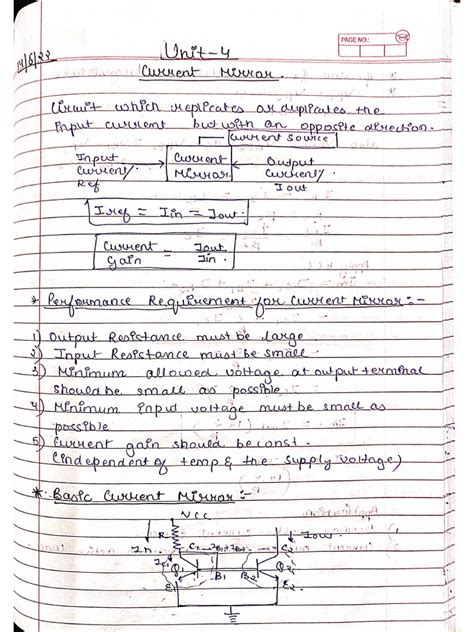 PAGE NO.:
14/6/22
Unit-4
Current Mirror.
Circuit which replicates or duplicates the
input current but with an opposite direction.
Current Source
Input Current/ Ref
Current Mirror
Output Current/ Iout
Iref = Iin = Iout
Current Gain = Iout/Iin
* Performance Requirement for Current Mirror:-
1) Output Resistance must be large
2) Input Resistance must be small.
3) Minimum allowed voltage at output terminal
should be small as possible
4) Minimum input voltage must be small as
possible
5) Current gain should be const.
(independent of temp & the supply voltage)
* Basic Current Mirror:-
VCC
R
Iout
C1
C2
Q1
B1
B2
Q2
E1
E2